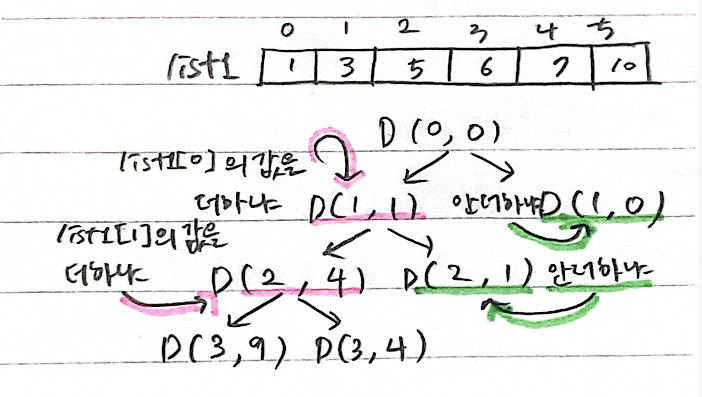 0 1 2 3 4 5
list1 1 3 5 6 7 10
D(0,0)
list1[0]의 값을
더하냐 D(1,1) 안더하냐 D(1,0)
list1[1]의 값을
더하냐 D(2,4) D(2,1) 안더하냐
D(3,9) D(3,4)